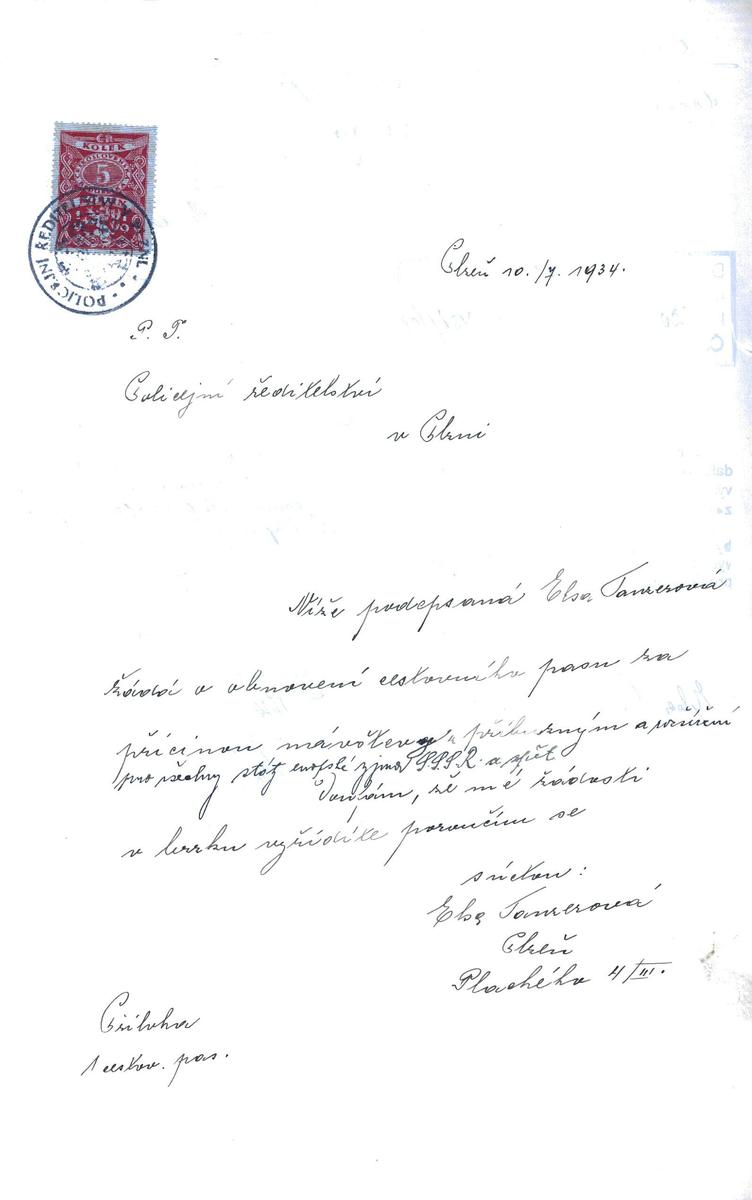 KOLEK
5
POLICEJNÍ ŘEDITELSTVÍ V PLZNI
Plzeň 10./7. 1934.
P. T.
Policejní ředitelství
v Plzni
Níže podepsaná Elsa Tanzerová
žádá o obnovení cestovního pasu za
příčinou návštěvy příbuzným a rozšíření
pro všechny státy evropské vyjma SSSR. a zpět
Doufám, že mé žádosti
v brzku vyřídíte poroučím se
s úctou:
Elsa Tanzerová
Plzeň
Plachého 4/III.
Příloha
1 cestov. pas.